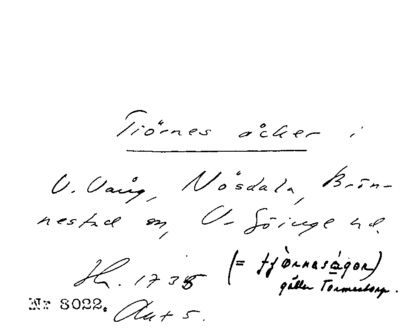 Tiörnes åcker i
V. Vång, Nösdala, Brön-
nestad sn, V. Göinge hd.
Jb. 1735 (= tjörnaságor)
gäller Tormestorp.
Nr 8022. Akt 5.